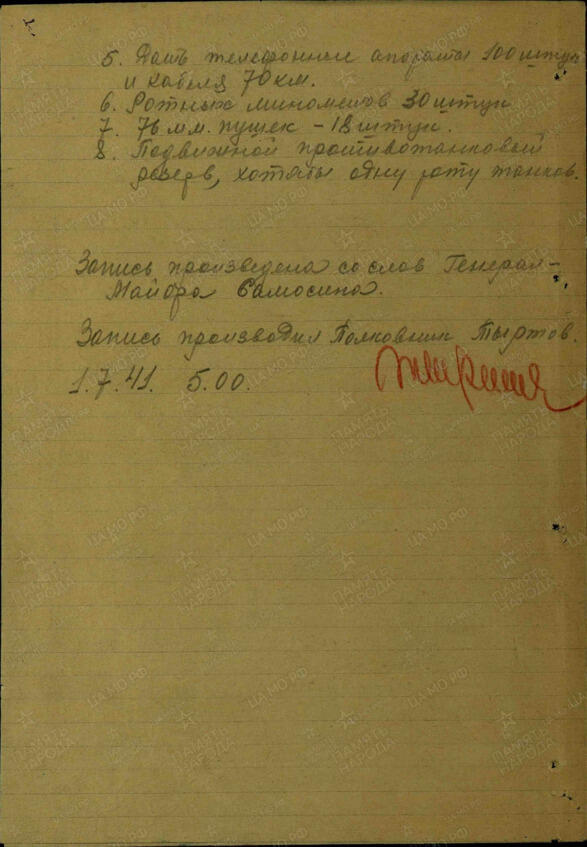 5. Дать телефонные апораты 100 штук
и кабеля 70 км.
6. Ротных минометов 30 штук
7. 76 мм. пушек - 18 штук.
8. Подвижной противотанковый
резерв, хотябы одну роту танков.
Запись произведена со слов Генерал-
Майора Самосина.
Запись производил Полковник Тыртов.
1.7.41. 5.00.